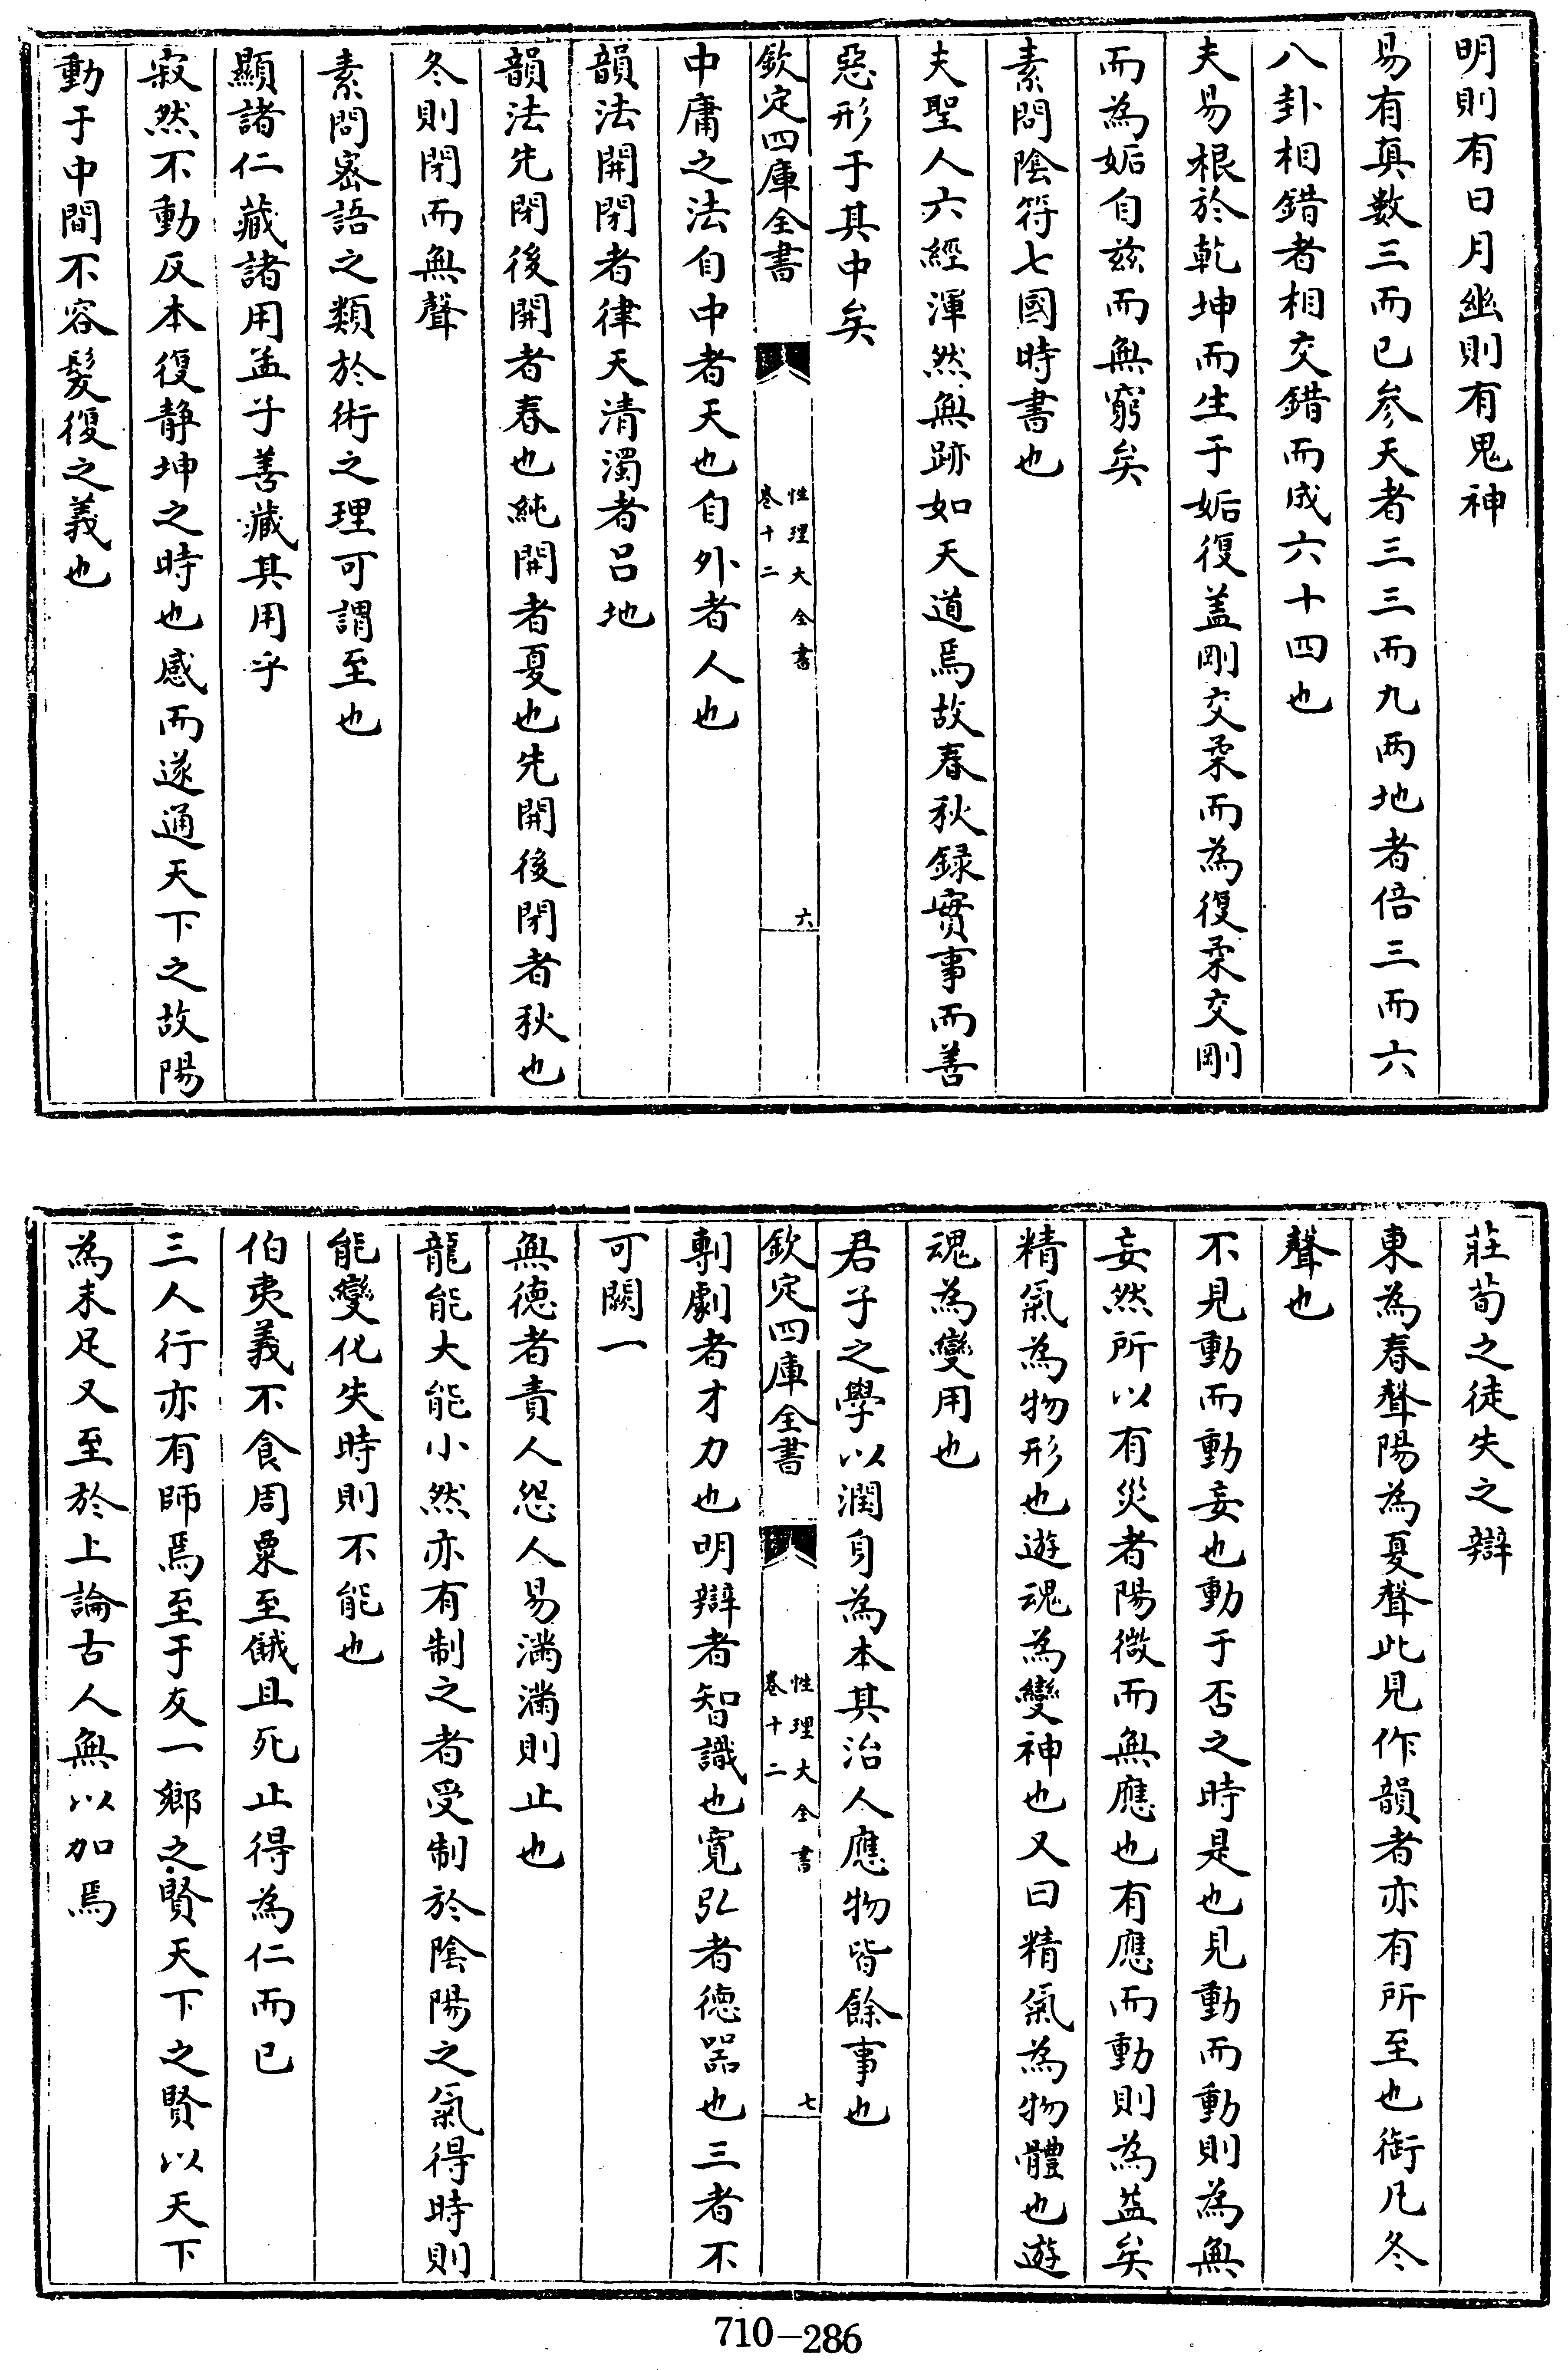 明則有日月幽則有鬼神
易有真數三而已參天者三三而九兩地者倍三而六
八卦相錯者相交錯而成六十四也
夫易根於乾坤而生于姤復蓋剛交柔而為復柔交剛
而為姤自茲而無窮矣
素問陰符七國時書也
夫聖人六經渾然無跡如天道焉故春秋録實事而善
惡形于其中矣
欽定四庫全書
性理大全書
卷十二
六
中庸之法自中者天也自外者人也
韻法開閉者律天清濁者呂地
韻法先閉後開者春也純開者夏也先開後閉者秋也
冬則閉而無聲
素問宻語之類於術之理可謂至也
顯諸仁藏諸用孟子善藏其用乎
寂然不動反本復静坤之時也感而遂通天下之故陽
動于中間不容髮復之義也
莊荀之徒失之辯
東為春聲陽為夏聲此見作韻者亦有所至也銜凡冬
聲也
不見動而動妄也動于否之時是也見動而動則為無
妄然所以有災者陽微而無應也有應而動則為益矣
精氣為物形也遊魂為變神也又曰精氣為物體也遊
魂為變用也
君子之學以潤身為本其治人應物皆餘事也
欽定四庫全書
性理大全書
卷十二
七
剸劇者才力也明辯者智識也寛弘者德器也三者不
可闕一
無德者責人怨人易滿滿則止也
龍能大能小然亦有制之者受制於陰陽之氣得時則
能變化失時則不能也
伯夷義不食周粟至餓且死止得為仁而已
三人行亦有師焉至于友一鄉之賢天下之賢以天下
為未足又至於上論古人無以加焉
710-286